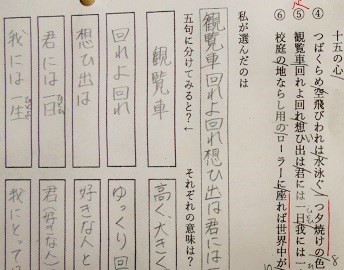 十五の心
④ つばくらめ空飛びわれは水泳ぐ一つ夕焼けの色
⑤ 観覧車回れよ回れ想ひ出は君には一日我には一
⑥ 校庭の地ならし用のローラーに座れば世界中が
私が選んだのは
観覧車回れよ回れ想ひ出は君には一
五句に分けてみると?←
それぞれの意味は?
観覧車
回れよ回れ
想ひ出は
君には一日
我には一生
高く、大きく
ゆっくり回
好きな人と
君(好きな人)
我にとって